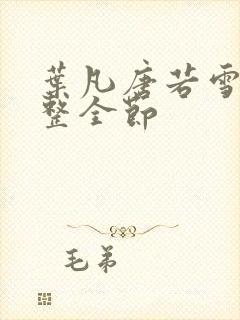 葉凡唐若雪
整全節
毛弟